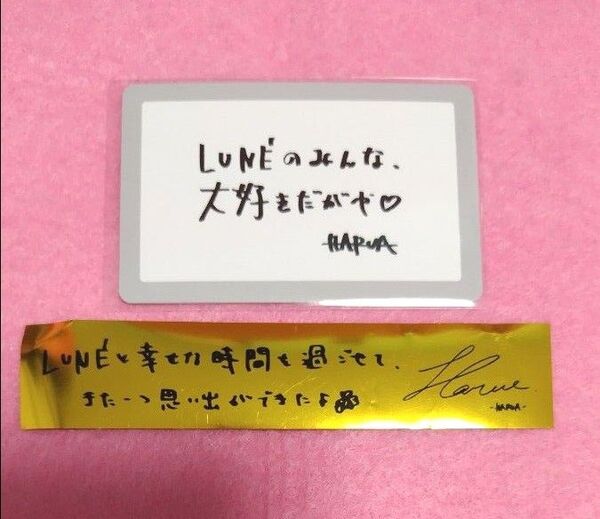 LUNÉのみんな、
大好きだがや♡
HARUA
LUNÉと幸せな時間を過ごせて、
また一つ思い出ができたよ
Harua
-HARUA-